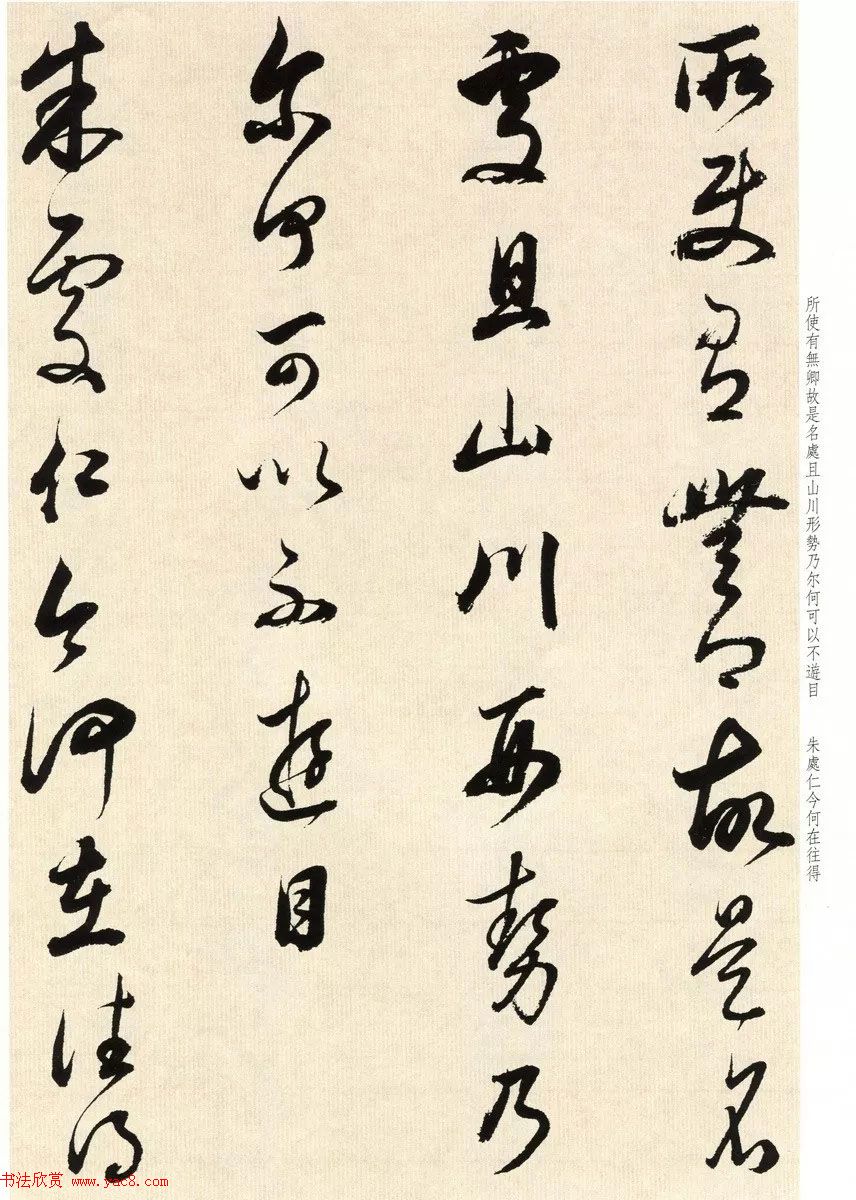 所使有無卿故是名處且山川形勢乃尔何可以不遊目　朱處仁今何在往得
所使有無卿故是名
處且山川形勢乃
尔何可以不遊目
朱處仁今何在往得
书法欣赏 www.yac8.com